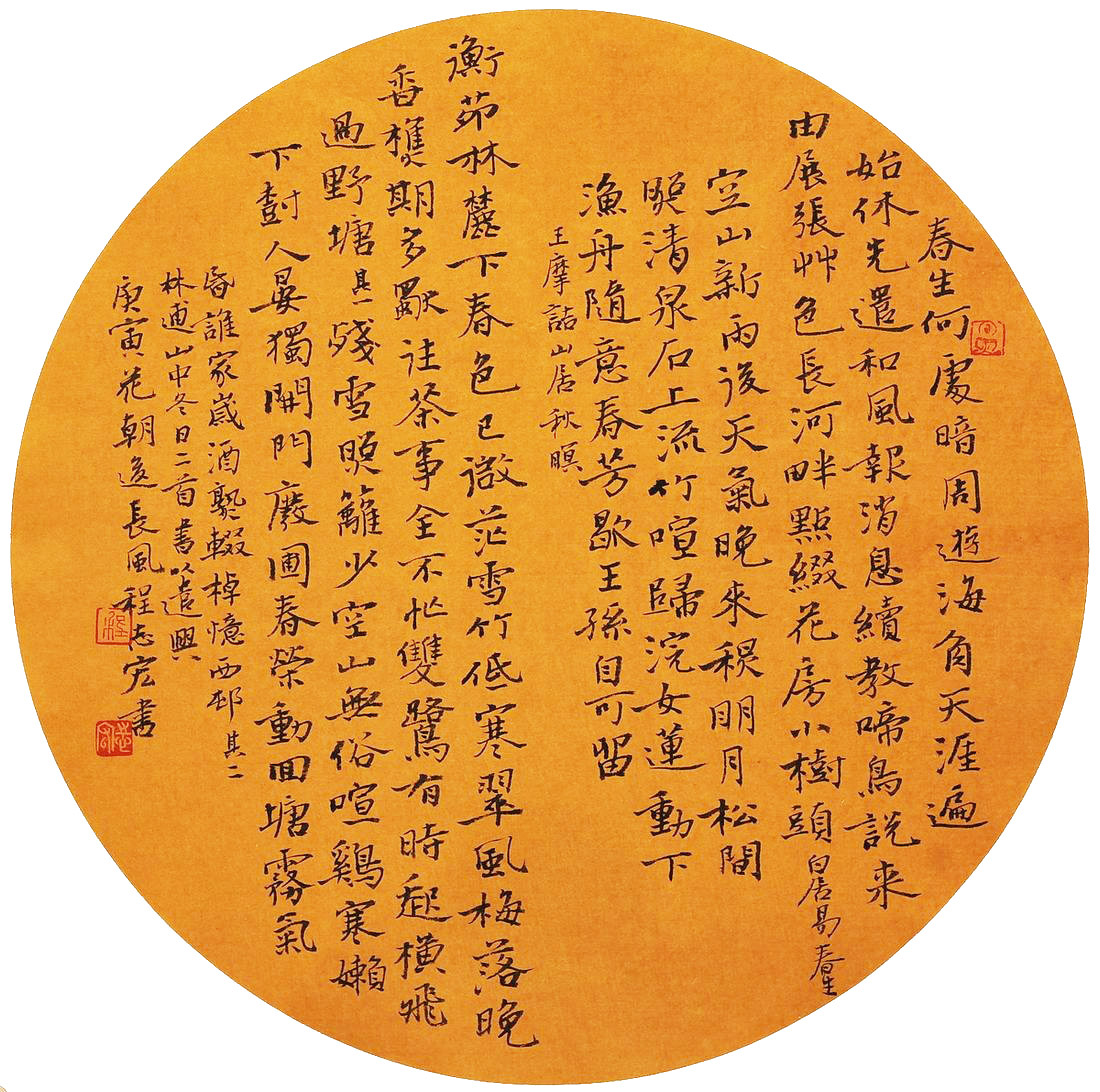 春生何處暗周遊海角天涯遍
始休先遣和風報消息續教啼鳥說來
由展張艸色長河畔點綴花房小樹頭 白居易春生
空山新雨後天氣晚來秋明月松間
照清泉石上流竹喧歸浣女蓮動下
漁舟隨意春芳歇王孫自可留
王摩詰山居秋暝
衡茆林麓下春色已微茫雪竹低寒翠風梅落晚
香樵期多獨往茶事全不忙雙鷺有時起橫飛
過野塘其一殘雪照籬少空山無俗喧鷄寒嬾
下樹人晏獨開門廢圃春榮動回塘霧氣
昏誰家歲酒熟輟棹憶西邨其二
林逋山中冬日二首書以遣興
庚寅花朝後長風程志宏書
程